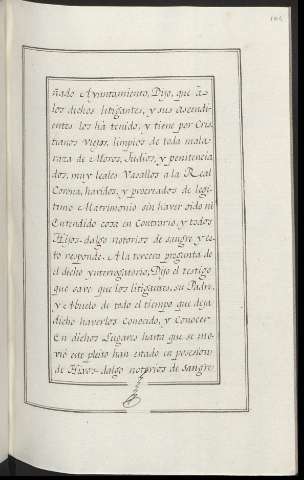 ñado Ayuntamiento, Dijo, que à
los dichos litigantes, y sus ascendi-
entes los hà tenido, y tiene por Cris-
tianos Viejos, limpios de toda mala
raza de Moros, Judios, y penitencia
dos, muy leales Vasallos a la Real
Corona, havidos, y procreados de legi-
timo Matrimonio sin haver oido ni
Entendido cosa en Contrario, y todos
Hijos-dalgo notorios de sangre y es-
to responde. A la tercera pregunta de
el dicho ynterrogatorio, Dijo el testigo
que save que los litigantes, su Padre,
y Abuelo de todo el tiempo que deja
dicho haverlos Conocido, y Conocer
En dichos Lugares hasta que se mo-
viò este pleito han estado en posesion
de Hijos-dalgo notorios de sangre